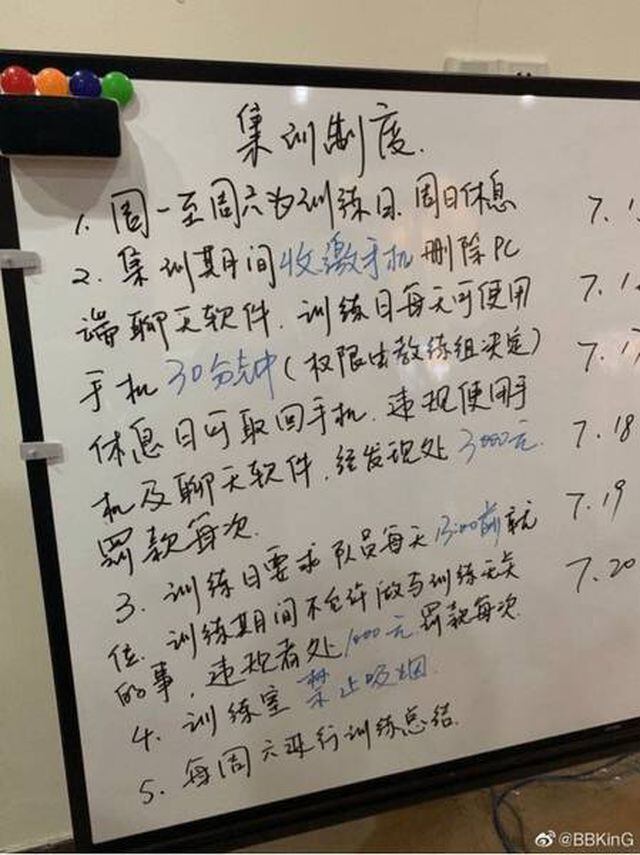 集训制度.
1. 周一至周六为训练日.周日休息
2. 集训期间收缴手机 删除PC
端聊天软件.训练日每天可使用
手机30分钟(权限由教练组决定)
休息日可取回手机.违规使用手
机及聊天软件,经发现处3000元
罚款每次.
3. 训练日要求队员每天13:00前就
位.训练期间不允许做与训练无关
的事,违规者处1000元罚款每次.
4. 训练室禁止吸烟.
5. 每周六进行训练总结.
7.17
7.18
7.19
7.20
@BBKinG